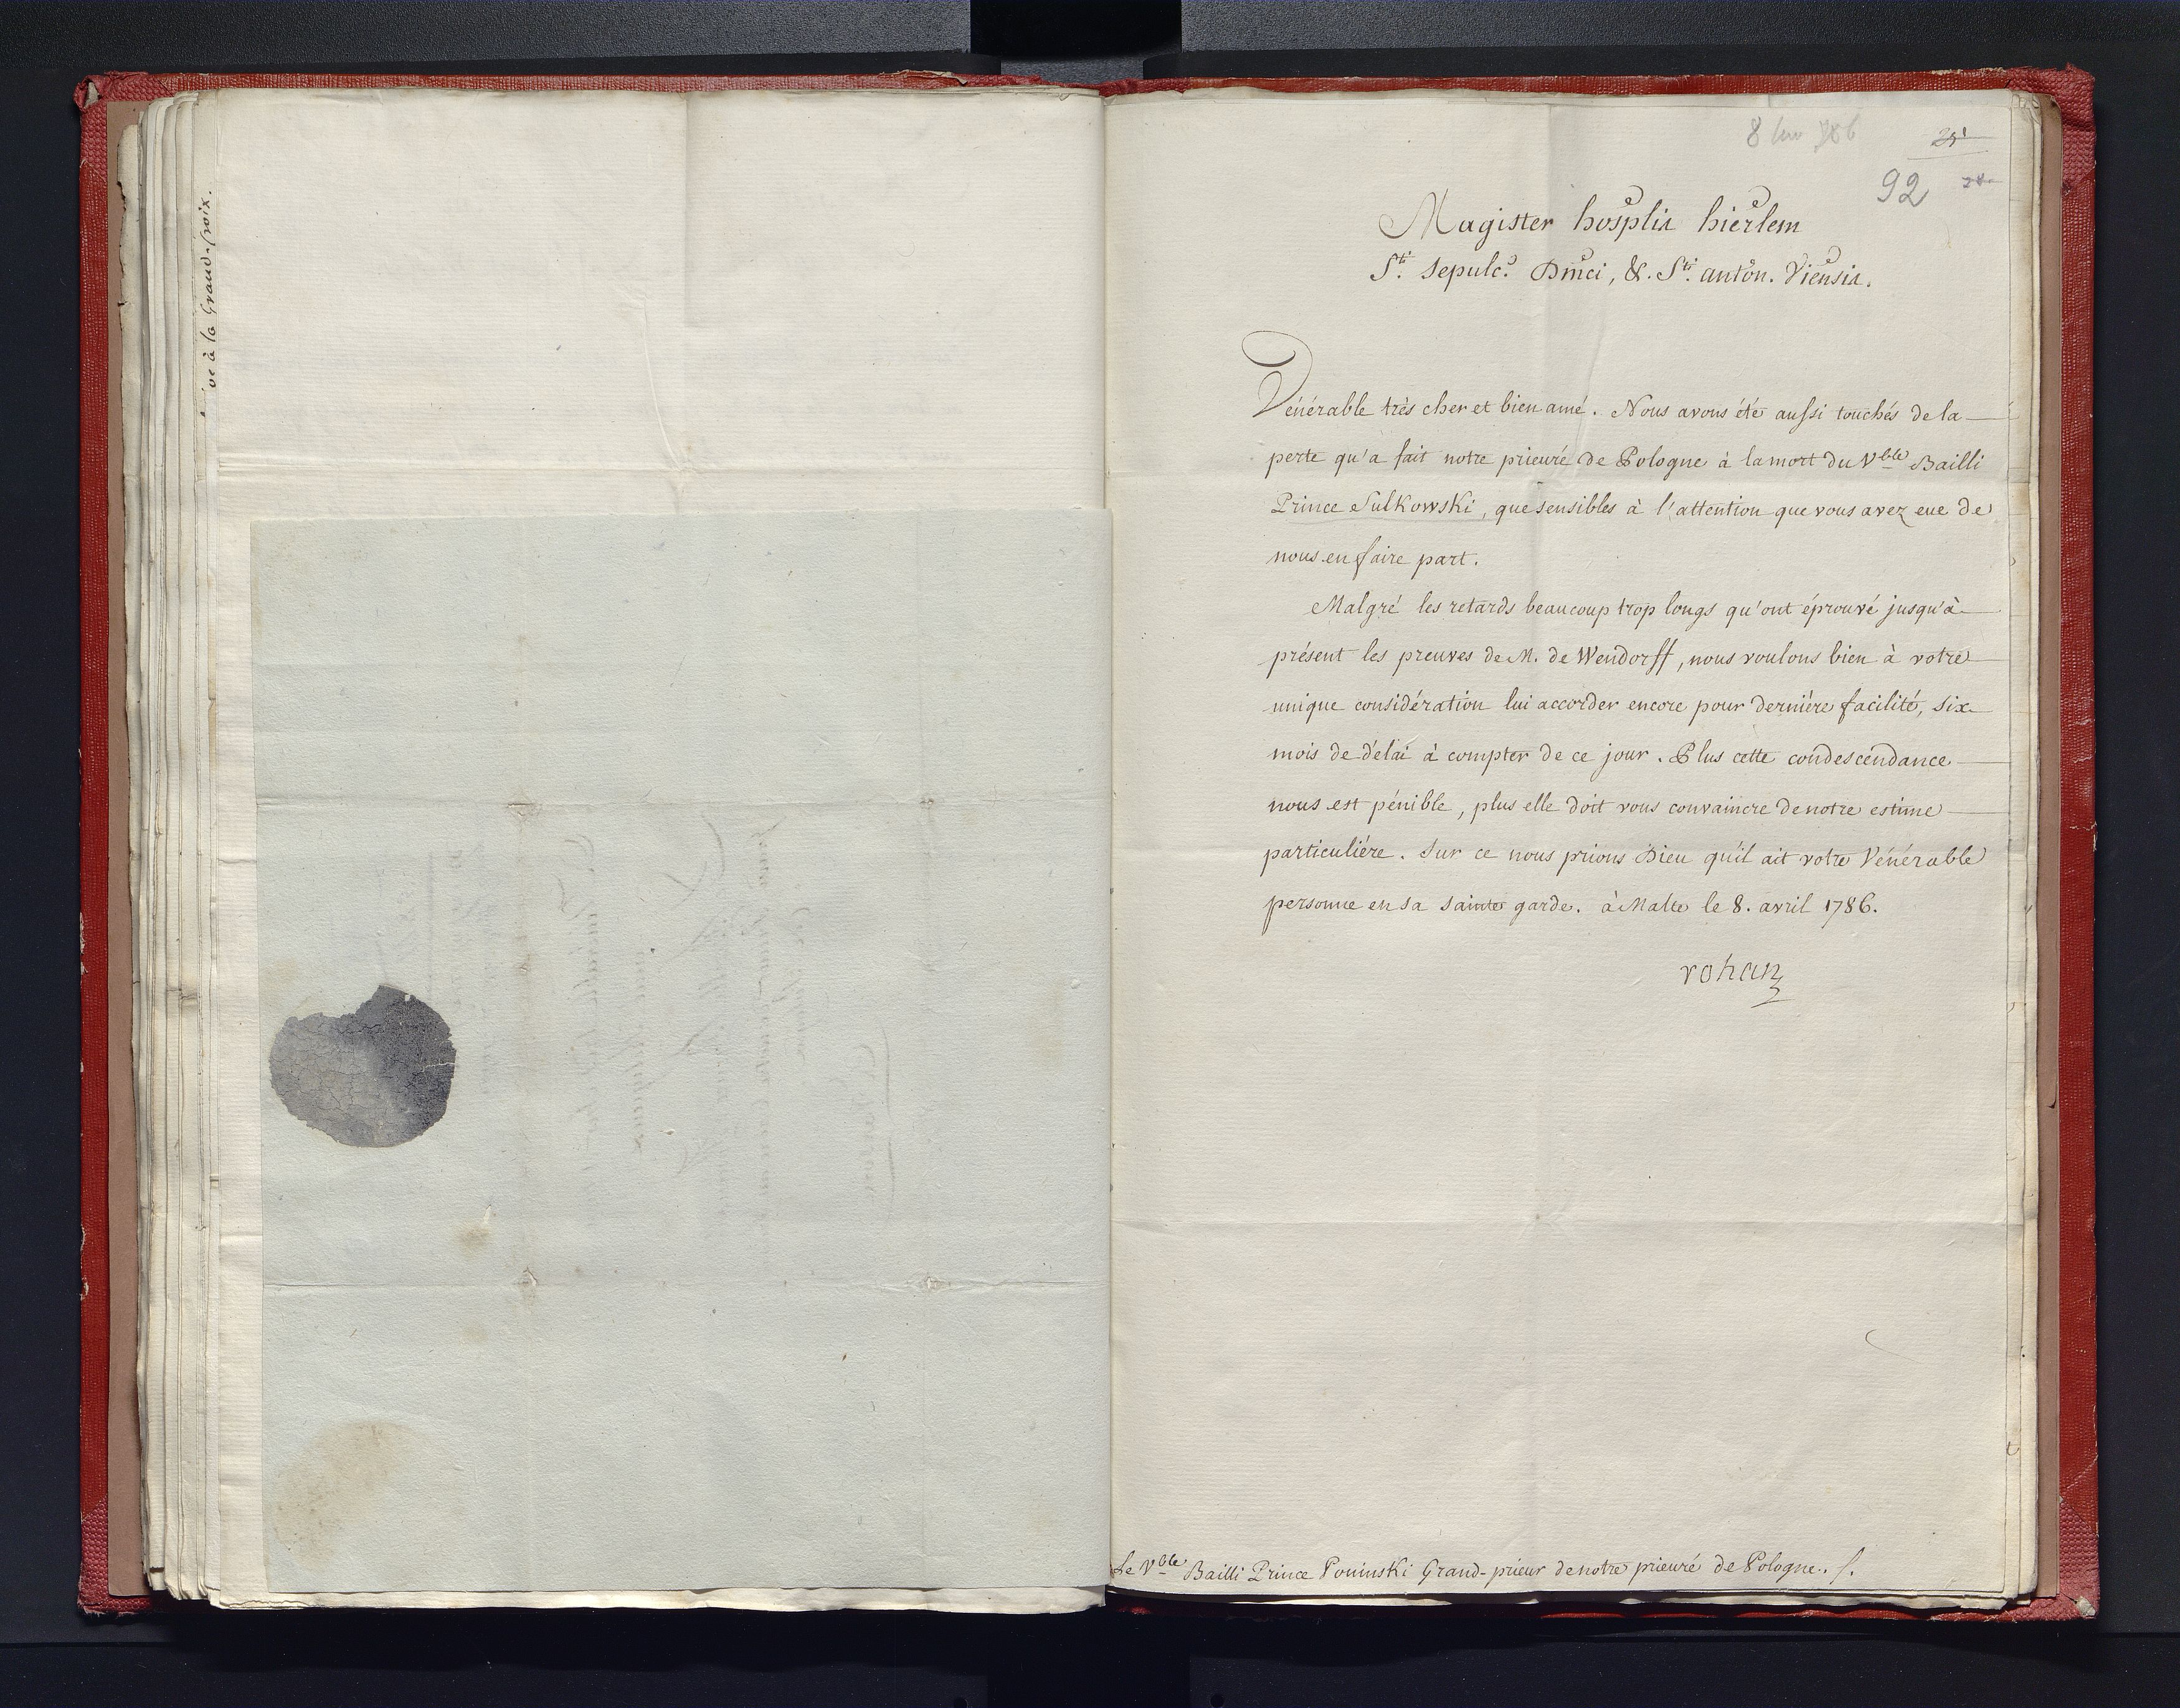 ve à la Grand-croix.
8 1786
25
92 28
Magister hosplis hierlem
Sti. sepulc. Dmci, &. Sti. antōn. Viensis.
Vénérable très cher et bien amé. Nous avons été aussi touchés de la
perte qu'a fait notre prieuré de Pologne à la mort du Vble Bailli
Prince Sulkowski, que sensibles à l'attention que vous avez eue de
nous en faire part.
Malgré les retards beaucoup trop longs qu'ont éprouvé jusqu'à
présent les preuves de M. de Wendorff, nous voulons bien à votre
unique considération lui accorder encore pour derniére facilité, six
mois de délai à compter de ce jour. Plus cette condescendance
nous est pénible, plus elle doit vous convaincre de notre estime
particuliére. Sur ce nous prions Dieu qu'il ait votre Vénérable
personne en sa sainte garde. à Malte le 8. avril 1786.
rohan
Le Vble Bailli Prince Poninski Grand-prieur de notre prieuré de Pologne. /.